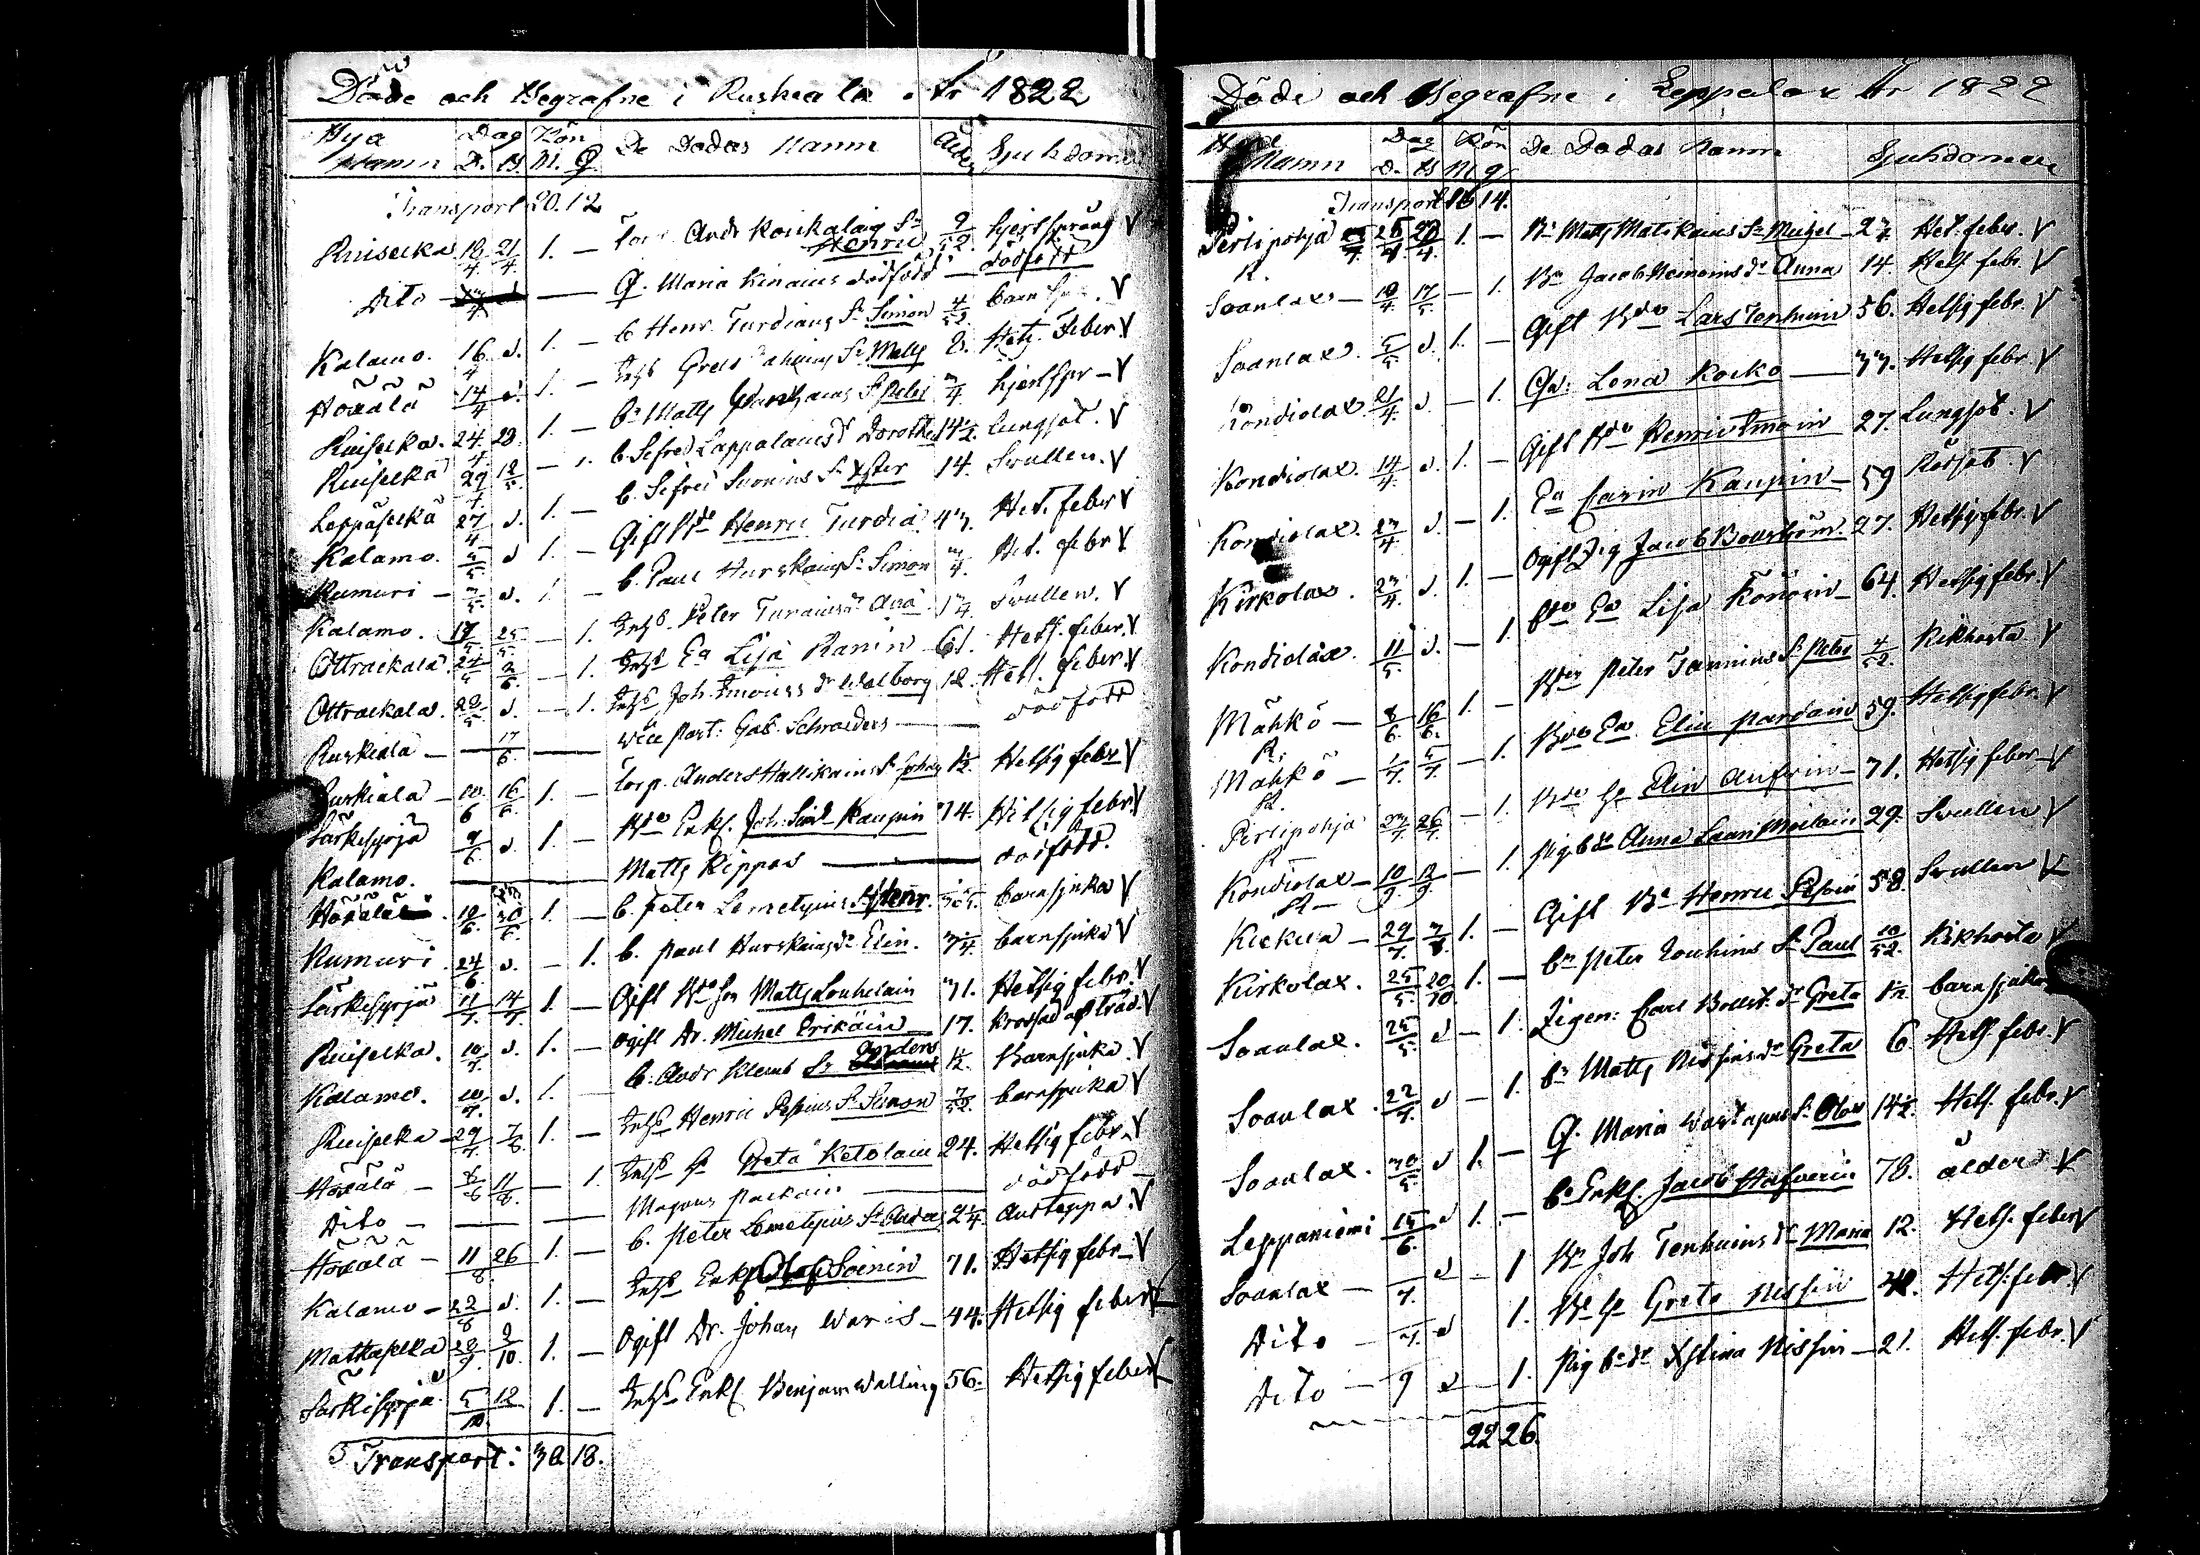 Döde och Begrafne i Ruskeala År 1822
Bya Namn Dag D. B. Kön M. Q. De Dödas Namn Ålder Sjukdomar
Transport 20. 12
Ruiselka 18/4 21/4 1. — Torp. Andr Koukalaig Sn Henric 9/52 hjertsprång V
Dito — Q. Maria Kinains dödfödd — dödfödd
Kalamo. 16/4 d. 1. — b Henr. Turdiaus Sn Simon 4/52 barn V
Höxälä 14/4 d. 1. — Inhs Grels Sn Matts 8. Hets. Feber V
Ruiselka. 24/4 28. 1. — bn Matts Sn Peter 3/4 hjertspr — V
Ruiselka 29/4 12/5 — 1. b. Sifred Lappalains dr Dorothe 14 1/2 lungsot. V
Leppäselkä 27/4 d. 1. — b. Sifred Soonins Sn Xster 14. Svullen. V
Kalamo. 5/5 d 1. — Gift Bde Henric Turdia 47. Het. feber V
Rumuri — 7/5 d. 1. — b. Paul Hurskaing Sn Simon 3/4 Het. febr V
Kalamo. 17/5 25/5 — 1. Inhs. Peter Turains dr 1 3/4 Svullen. V
Ottrackala 24/5 2/6 — 1. Inhs Ea Lisa Ranin 61. Hets. feber. V
Ottrackala. 28/5 d. — 1. Inhs. Joh. Imoniss dr Walborg 12. Hets. feber V
Ruskiala — 17/6 — Vice Past: Gab. Schroeders — dödfödd
Ruskiala — 10/6 16/6 1. — Torp. Anders Hallikains Sn Johan 1/2 Hetsig febr V
Särkisyrjä 9/6 d. 1. — Bde Enkl. Joh. Sim Kaupin 74. Hetsig febr V
Kalamo. — Matts Kippos — dödfödd.
Höxälä. 18/6 30/6 1. — b. Peter Lemetyins Sn Henr. barnsjuka V
Rumuri 24/6 d. — 1. b. Paul Hurskaing dr Elin. 3/4 barnsjuka V
Särkisyrjä 11/7 14/7 1. — Gift Bde Sn Matts Louhelain 71. Hetsig febr. V
Ruiselka. 10/7 d. 1. — Ogift Dr. Michel Erikäin — 17. krossad af träd. V
Kalamo. 10/7 d. 1. — b. Andr Klemt Sn Anders 1/2 Barnsjuka. V
Ruiselka — 29/7 7/8 1. — Inhs Henric Pesoins Sn Simon 7/52 barnsjuka V
Höxälä — 6/8 11/8 — 1. Inhs hu Greta Ketolain 24. Hetsig febr. V
Dito — — — Magnus Packain — dödfödd —
Höxälä — 11/8 26 1. — b. Peter Lemetyins Sn Andr 2 1/4 Andteppa. V
Kalamo — 22/8 d. 1. — Inhs Enkl Olof Soinin 71. Hetsig febr — V
Matkaselka 28/9 9/10 1. — Ogift Dr. Johan Waris — 44. Hetsig feber V
Särkisyrjä 5/10 12 1. — Inhs Enkl Benjam Walling 56. Hetsig feber V
Transport: 38 18.
Döde och Begrafne i Leppalax År 1822
Namn Dag D. B Kön M q De Dödas Namn Sjukdomar
Transport 16 14.
Perlipohja 26/4 28/4 1. — Bn Matts Matikains Sn Michel — 2 3/4 Het. feber. V
Soanlax — 10/4 17/5 — 1. Bn Jacob dr Anna 14. Hets. febr. V
Soanlax. 5/5 d 1. — Gift Bde Lars Tenhuin 56. Hetsig febr. V
Kondiolax 21/4 d. — 1. Gn: Lena Kocko — 33. Hetsig febr V
Kondiolax. 14/4 d. 1. — Gift Bde Henric Imoin 27. Lungsot. V
Kondiolax. 27/4 d. — 1. Ea Carin Kaupin — 59 Rödsot. V
Kirkolax. 27/4 d. 1. — Ogift Zig Jacob Bollström. 27. Hetsig febr. V
Kondiolax. 11/5 d. — 1. Bde Ea Lisa Könöin — 64. Hetsig febr. V
Mähkö — 8/6 16/6 1. — Peter Tannins Sn Peter 4/52 Kikhosta V
Mähkö — 1/7 5/7 — 1. Bde Ea Elin Pardain 59. Hetsig febr. V
Perlipohja 23/7 26/7 — 1. Bde hu Elin Aufwin — 71. Hetsig feber — V
Kondiolax — 10/9 13/9 — 1. Pig b dr Anna Laari 29. Svullen V
Kiekua — 29/7 7/8 1. — Gift Bn Henric Pesoin 58. Svullen V
Kirkolax. 25/5 20/10 1. — bn Peter Louhins Sn Paul 10/52 Kikhosta V
Soanlax. 25/5 d — 1. Zigen: Carl Bollst. dr Greta 1/2 barnsjuka
Soanlax. 22/7 d — 1. bn Matts Nissins dr Greta 6. Hets. febr. V
Soanlax. 30/5 d 1. — Q. Maria Wartapus Sn Olov 14 1/2 Hets. febr. V
Leppaniemi 15/6 d 1. — bn Enkl. Jacob Hafverin 78. ålderd V
Soanlax — /7 d — 1 Bn Joh Tenhuins dr Maria 12. Hets. feber V
Dito — /7 d 1. Bn hu Greta Nissin Hets. febr. V
Dito — 9 d — 1. Pig bn dr Xstina Nissin — 21. Hets. febr. V
22 26.